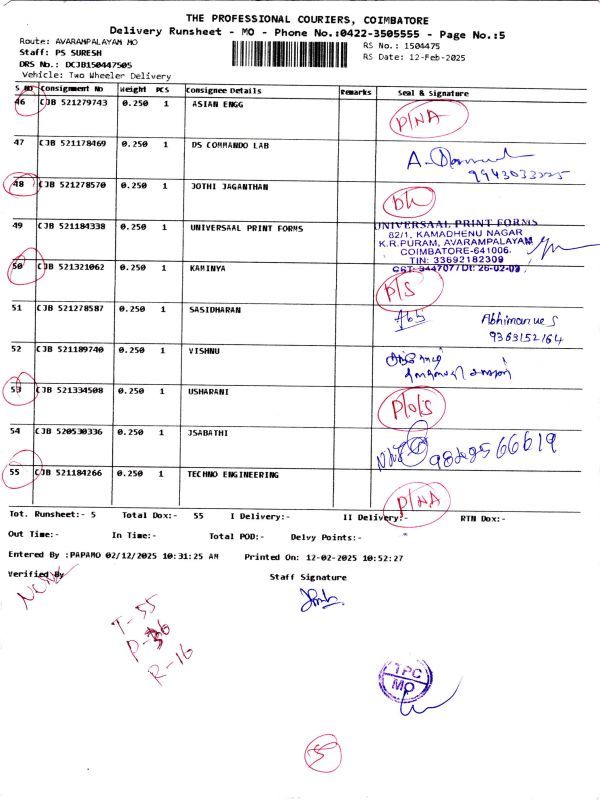 THE PROFESSIONAL COURIERS, COIMBATORE
Delivery Runsheet - MO - Phone No.:0422-3505555 - Page No.:5
Route: AVARAMPALAYAM MO
Staff: PS SURESH
DRS No.: DCJB150447505
Vehicle: Two Wheeler Delivery
RS No.: 1504475
RS Date: 12-Feb-2025
S NO Consignment No Weight PCS Consignee Details Remarks Seal & Signature
46 CJB 521279743 0.250 1 ASIAN ENGG P/NA
47 CJB 521178469 0.250 1 DS COMMANDO LAB
48 CJB 521278570 0.250 1 JOTHI JAGANTHAN
49 CJB 521184338 0.250 1 UNIVERSAAL PRINT FORMS
UNIVERSAAL PRINT FORMS
82/1, KAMADHENU NAGAR
K.R.PURAM, AVARAMPALAYAM
COIMBATORE-641006.
TIN: 33692182309
50 CJB 521321062 0.250 1 KAMINYA P/S
51 CJB 521278587 0.250 1 SASIDHARAN Abhimanue S
9363152164
52 CJB 521189740 0.250 1 VISHNU
53 CJB 521334508 0.250 1 USHARANI P/o/s
54 CJB 520530336 0.250 1 JSABATHI
55 CJB 521184266 0.250 1 TECHNO ENGINEERING P/NA
Tot. Runsheet:- 5 Total Dox:- 55 I Delivery:- II Delivery:- RTN Dox:-
Out Time:- In Time:- Total POD:- Delvy Points:-
Entered By :PAPAMO 02/12/2025 10:31:25 AM Printed On: 12-02-2025 10:52:27
Verified By Staff Signature
T-55
R-16
TPC
MO